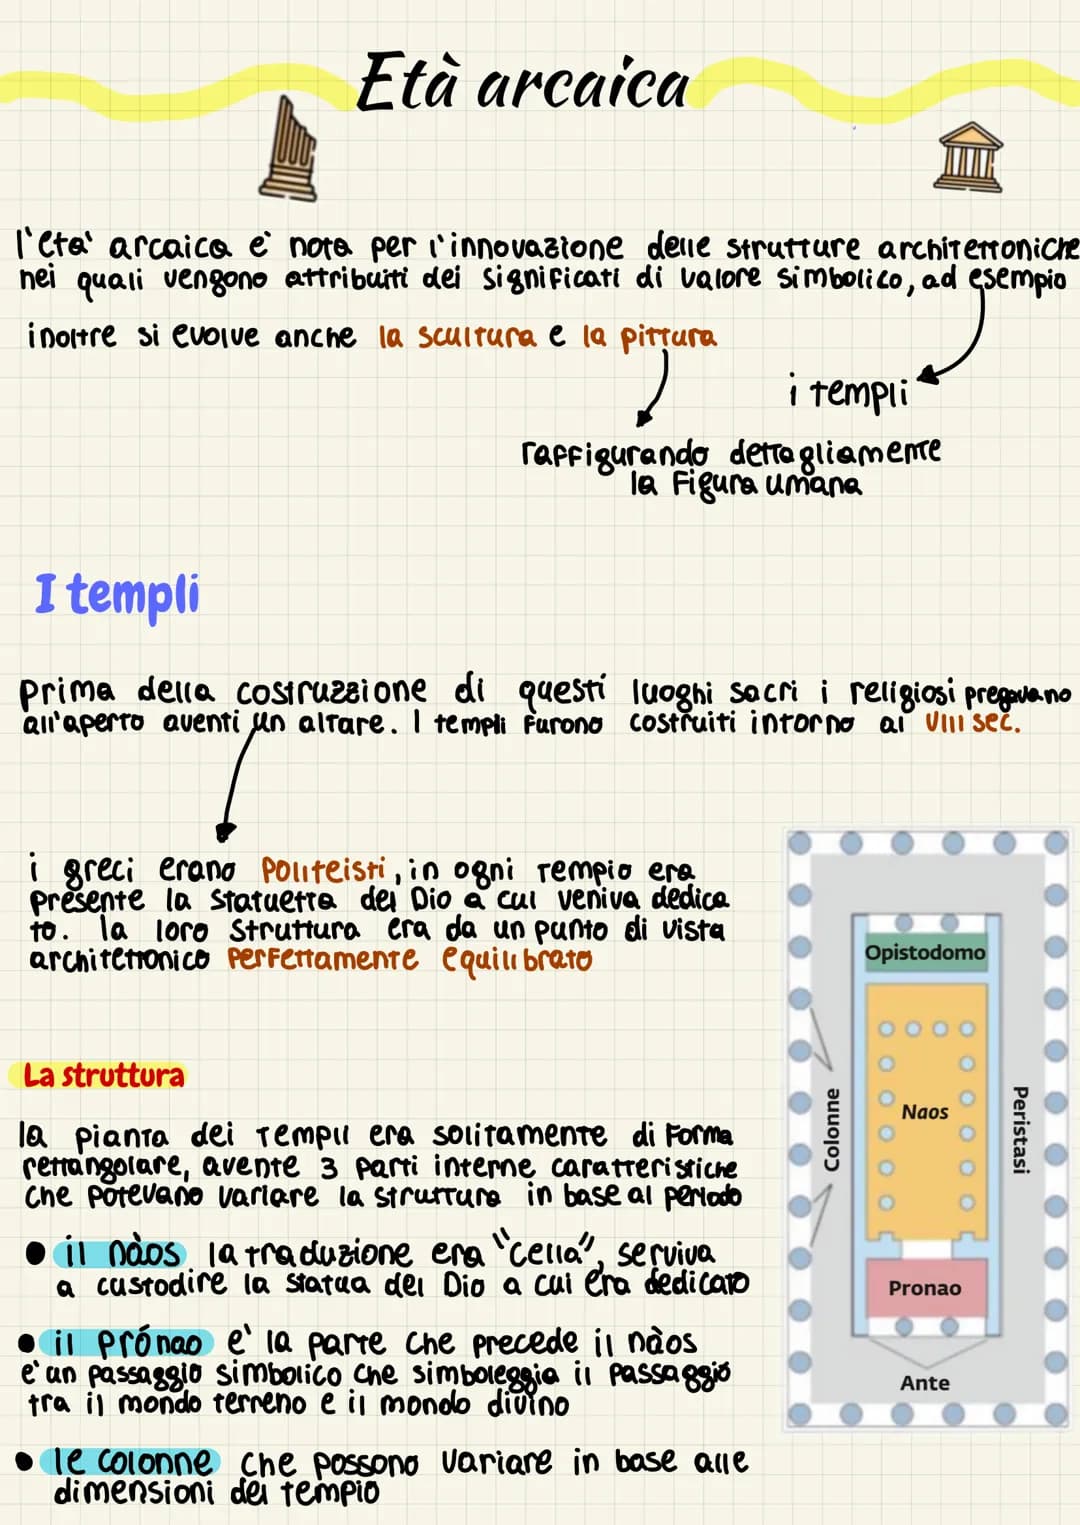 Età arcaica
l'eta' arcaica e' nota per l'innovazione delle strutture architettoniche
nei quali vengono attribuiti dei significati di valore simbolico, ad esempio
inoltre si evolve anche la scultura e la pittura
i templi
raffigurando dettagliamente
la figura umana
I templi
prima della costruzzione di questi luoghi sacri i religiosi pregavano
all'aperto aventi un altare. I templi furono costruiti intorno al VIII sec.
i greci erano Politeisti, in ogni tempio era
presente la statuetta del Dio a cui veniva dedica
to. la loro struttura era da un punto di vista
architettonico perfettamente equilibrato
La struttura
la pianta dei templi era solitamente di forma
rettangolare, avente 3 parti interne caratteristiche
che potevano variare la struttura in base al periodo
• il nàos la traduzione era "cella", serviva
a custodire la statua del Dio a cui era dedicato
• il prónao e' la parte che precede il nàos
e' un passaggio simbolico che simboleggia il passaggio
tra il mondo terreno e il mondo divino
• le colonne che possono variare in base alle
dimensioni del tempio
Opistodomo
Naos
Colonne
Peristasi
Pronao
Ante